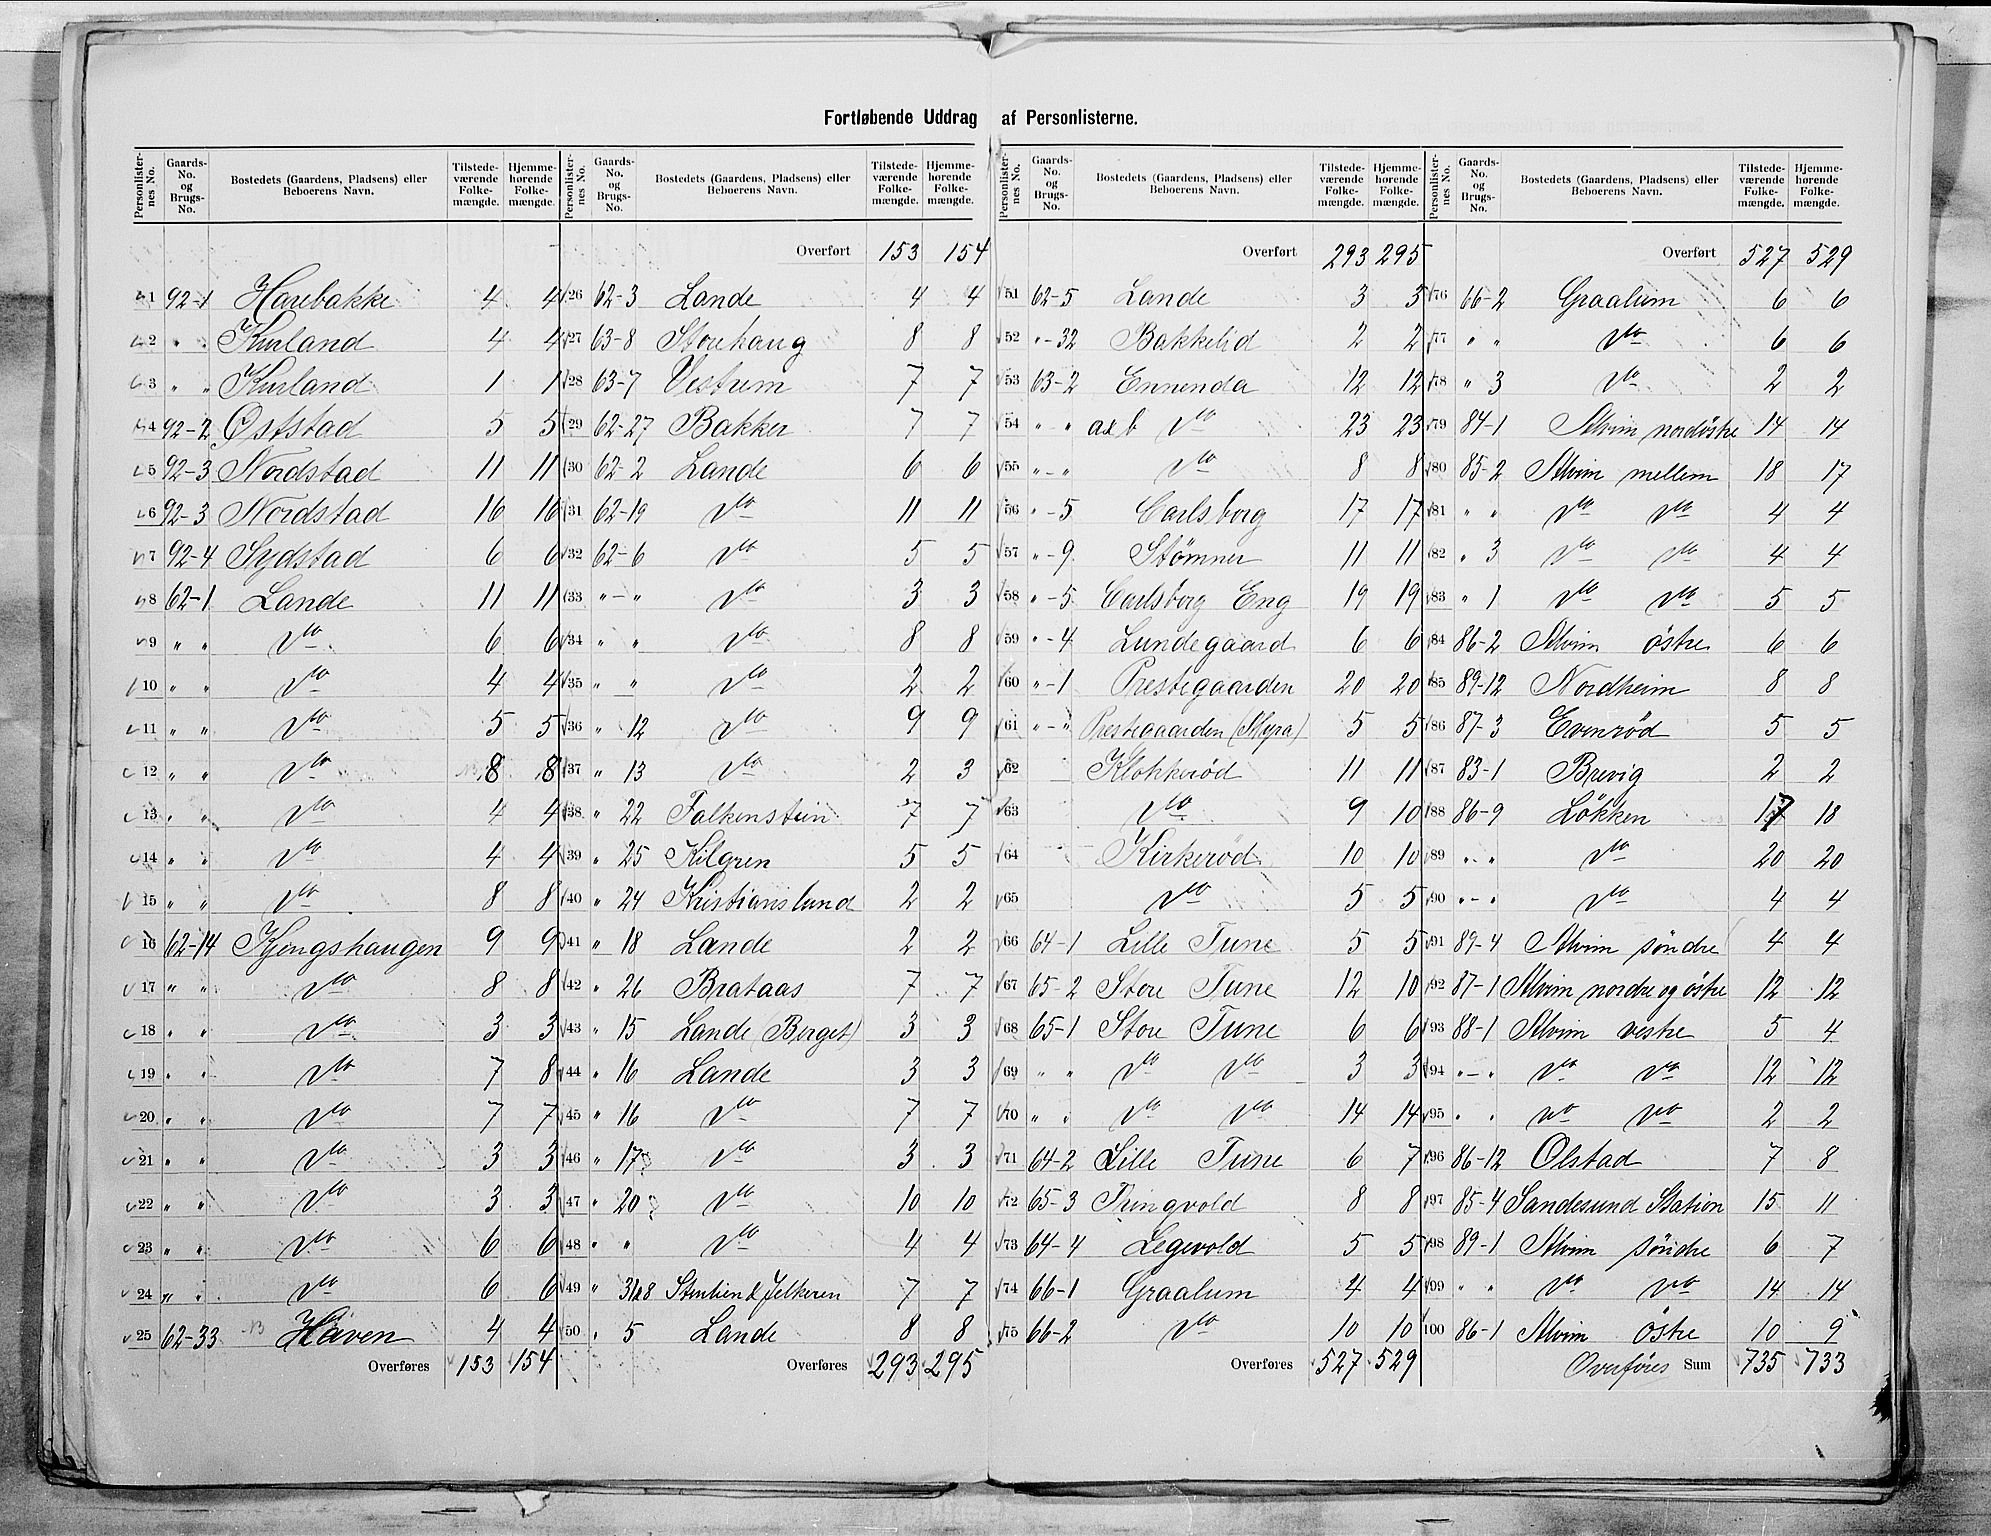 Fortløbende Uddrag af Personlisterne.
Personlisternes No. Gaards-No. og Brugs-No. Bostedets (Gaardens, Pladsens) eller Beboerens Navn. Tilstedeværende Folkemængde. Hjemmehørende Folkemængde.
1 92-1 Harebakke 4 4
2 " " Kurland 4 4
3 " " Kurland 1 1
4 92-2 Oststad 5 5
5 92-3 Nordstad 11 11
6 92-3 Nordstad 16 16
7 92-4 Sydstad 6 6
8 62-1 Lande 11 11
9 " " do 6 6
10 " " do 4 4
11 " " do 5 5
12 " " do 8 8
13 " " do 4 4
14 " " do 4 4
15 " " do 8 8
16 62-14 Kongshaugen 9 9
17 " " do 8 8
18 " " do 3 3
19 " " do 7 8
20 " " do 7 7
21 " " do 3 3
22 " " do 3 3
23 " " do 6 6
24 " " do 6 6
25 62-33 Haven 4 4
Overføres 153 154
Personlisternes No. Gaards-No. og Brugs-No. Bostedets (Gaardens, Pladsens) eller Beboerens Navn. Tilstedeværende Folkemængde. Hjemmehørende Folkemængde.
Overført 153 154
26 62-3 Lande 4 4
27 63-8 Storhaug 8 8
28 63-7 Vestrem 7 7
29 62-27 Bakker 7 7
30 62-2 Lande 6 6
31 62-19 do 11 11
32 62-6 do 5 5
33 "-" do 3 3
34 " " do 8 8
35 " " do 2 2
36 " 12 do 9 9
37 " 13 do 2 3
38 " 22 Falkenstein 7 7
39 " 25 Kilgren 5 5
40 " 24 Kristianslund 2 2
41 " 18 Lande 2 2
42 " 26 Brataas 7 7
43 " 15 Lande (Berget) 3 3
44 " 16 Lande 3 3
45 " 16 do 7 7
46 " 17 do 3 3
47 " 20 do 10 10
48 " " do 4 4
49 " 31&8 7 7
50 " 5 Lande 8 8
Overføres 293 295
Personlisternes No. Gaards-No. og Brugs-No. Bostedets (Gaardens, Pladsens) eller Beboerens Navn. Tilstedeværende Folkemængde. Hjemmehørende Folkemængde.
Overført 293 295
51 62-5 Lande 3 3
52 "-32 Bakkelid 2 2
53 63-2 Ennenda 12 12
54 " " a&b do 23 23
55 "-" do 8 8
56 "-5 Carlsborg 17 17
57 "-9 Stømner 11 11
58 "-5 Carlsborg Eng 19 19
59 "-4 Lundegaard 6 6
60 "-1 Prestegaarden 20 20
61 "-" Prestegaarden (Myra) 5 5
62 Klokkerød 11 11
63 do 9 10
64 Kirkerød 10 10
65 do 5 5
66 64-1 Lille Tune 5 5
67 65-2 Store Tune 12 10
68 65-1 Store Tune 6 6
69 " " do do 3 3
70 " " do do 14 14
71 64-2 Lille Tune 6 7
72 65-3 Tingvold 8 8
73 64-4 Legevold 5 5
74 66-1 Graalum 4 4
75 66-2 do 10 10
Overføres 527 529
Personlisternes No. Gaards-No. og Brugs-No. Bostedets (Gaardens, Pladsens) eller Beboerens Navn. Tilstedeværende Folkemængde. Hjemmehørende Folkemængde.
Overført 527 529
76 66-2 Graalum 6 6
77 " " do 6 6
78 " 3 do 2 2
79 84-1 Alvim nordöstre 14 14
80 85-2 Alvim mellem 18 17
81 " " do do 4 4
82 " 3 do do 4 4
83 " 1 do do 5 5
84 86-2 Alvim östre 6 6
85 89-12 Nordheim 8 8
86 87-3 Evenrød 5 5
87 83-1 Brevig 2 2
88 86-9 Lökken 17 18
89 " " do 20 20
90 "-" do 4 4
91 89-4 Alvim söndre 4 4
92 87-1 Alvim nordre og östre 12 12
93 88-1 Alvim vestre 5 4
94 "-" do do 12 12
95 " " do do 2 2
96 86-12 Olstad 7 8
97 85-4 Sandesund Station 15 11
98 89-1 Alvim söndre 6 7
99 " " do do 14 14
100 86-1 Alvim östre 10 9
Overføres Sum 735 733